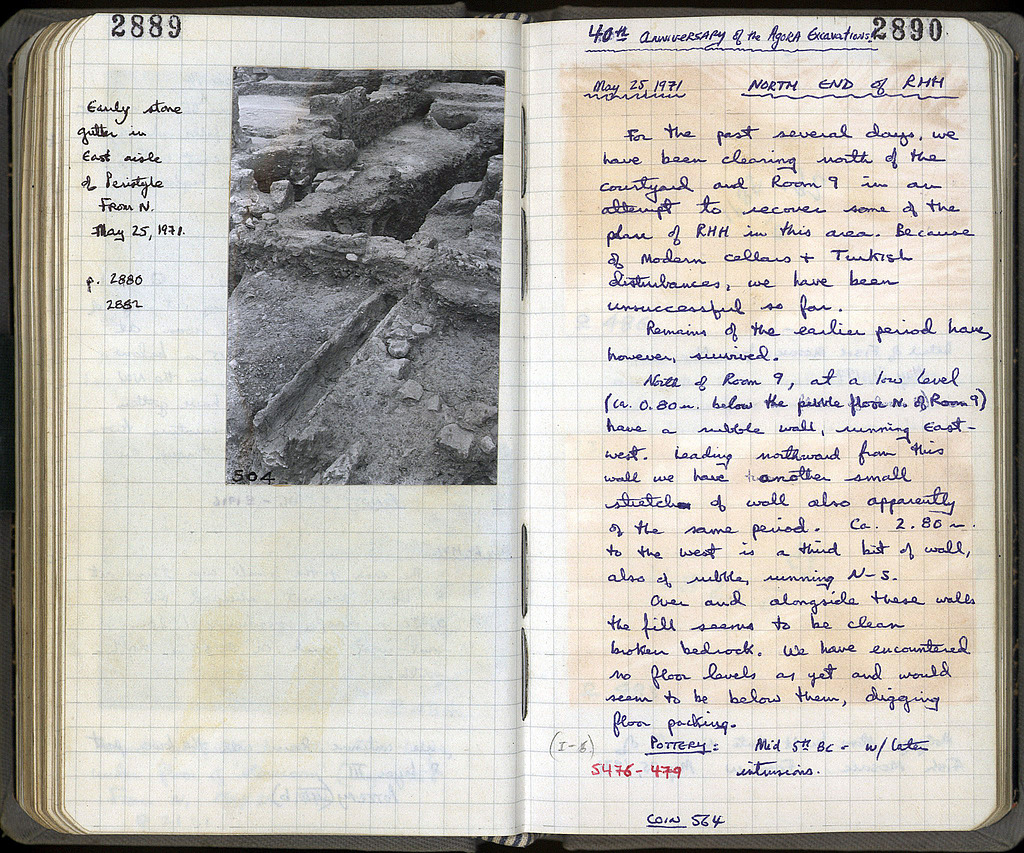 2889
Early stone
gutter in
East aisle
of Peristyle
From N.
May 25, 1971.
p. 2880
2882
504
40th ANNIVERSARY of the AGORA EXCAVATIONS!
2890
May 25, 1971 NORTH END of RHH
For the past several days, we
have been clearing north of the
courtyard and Room 9 in an
attempt to recover some of the
plan of RHH in this area. Because
of Modern cellars + Turkish
disturbances, we have been
unsuccessful so far.
Remains of the earlier period have,
however, survived.
North of Room 9, at a low level
(ca. 0.80 m. below the pebble floor N. of Room 9)
have a rubble wall, running East-
west. Leading northward from this
wall we have another small
stretch of wall also apparently
of the same period. Ca. 2.80 m.
to the west is a third bit of wall,
also of rubble, running N-S.
Over and alongside these walls
the fill seems to be clean
broken bedrock. We have encountered
no floor levels as yet and would
seem to be below them, digging
floor packing.
(I-6) POTTERY: Mid 5th BC - w/ later
5476-479 intrusions.
COIN 564